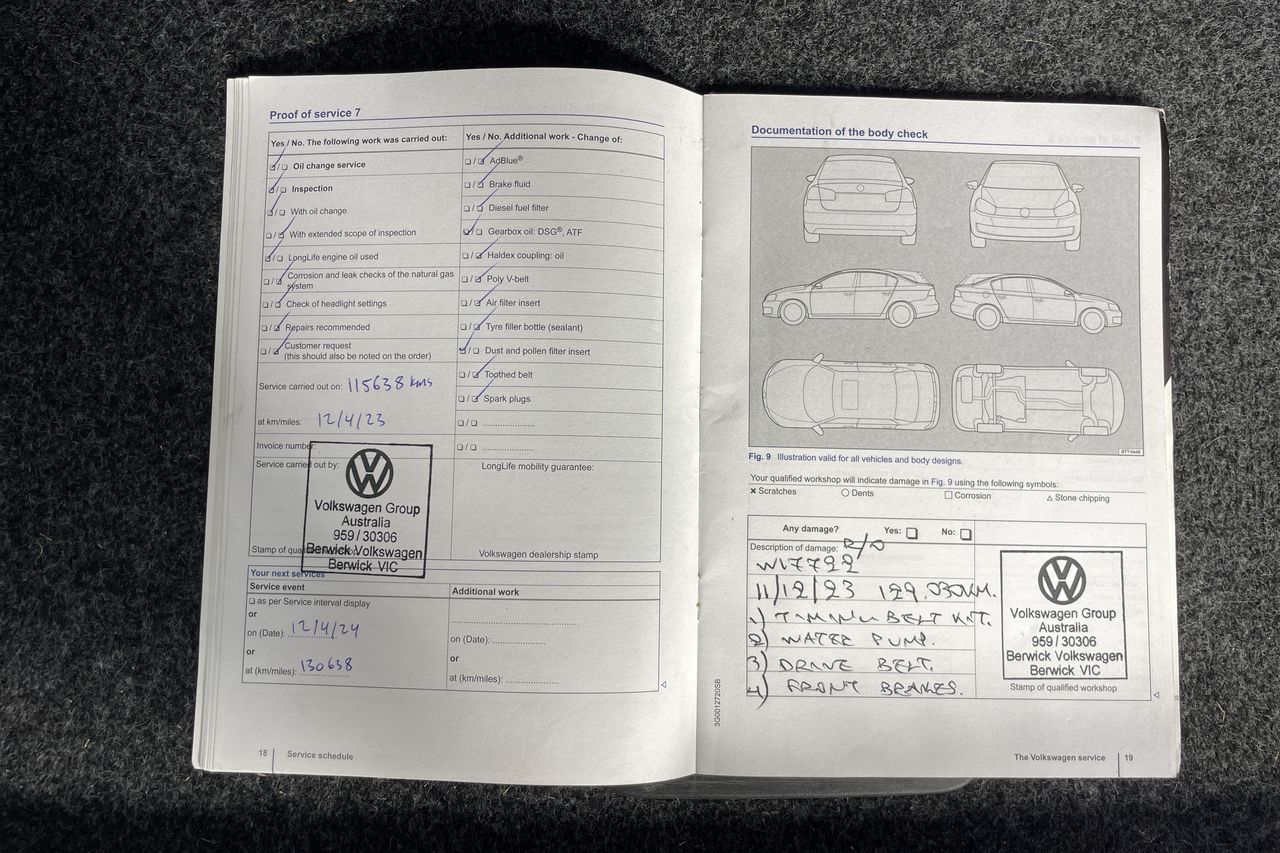 Proof of service 7
Yes / No. The following work was carried out:
Oil change service
Inspection
With oil change
With extended scope of inspection
LongLife engine oil used
Corrosion and leak checks of the natural gas
system
Check of headlight settings
Repairs recommended
Customer request
(this should also be noted on the order)
Service carried out on: 115638 kms
at km/miles: 12/4/23
Invoice number:
Service carried out by:
Volkswagen Group
Australia
959 / 30306
Berwick Volkswagen
Berwick VIC
Yes / No. Additional work - Change of:
AdBlue®
Brake fluid
Diesel fuel filter
Gearbox oil: DSG®, ATF
Haldex coupling: oil
Poly V-belt
Air filter insert
Tyre filler bottle (sealant)
Dust and pollen filter insert
Toothed belt
Spark plugs
LongLife mobility guarantee:
Volkswagen dealership stamp
Your next services
Service event
as per Service interval display
or
on (Date): 12/4/24
or
at (km/miles): 130638
Additional work
on (Date):
or
at (km/miles):
18 Service schedule
Documentation of the body check
Fig. 9 Illustration valid for all vehicles and body designs.
Your qualified workshop will indicate damage in Fig. 9 using the following symbols:
Scratches Dents Corrosion Stone chipping
Any damage? Yes: No:
Description of damage: R/O
W17722
11/12/23 129,030KM.
1) TIMING BELT KIT.
2) WATER PUMP.
3) DRIVE BELT.
4) FRONT BRAKES.
Volkswagen Group
Australia
959 / 30306
Berwick Volkswagen
Berwick VIC
Stamp of qualified workshop
3G0012720SB
The Volkswagen service 19